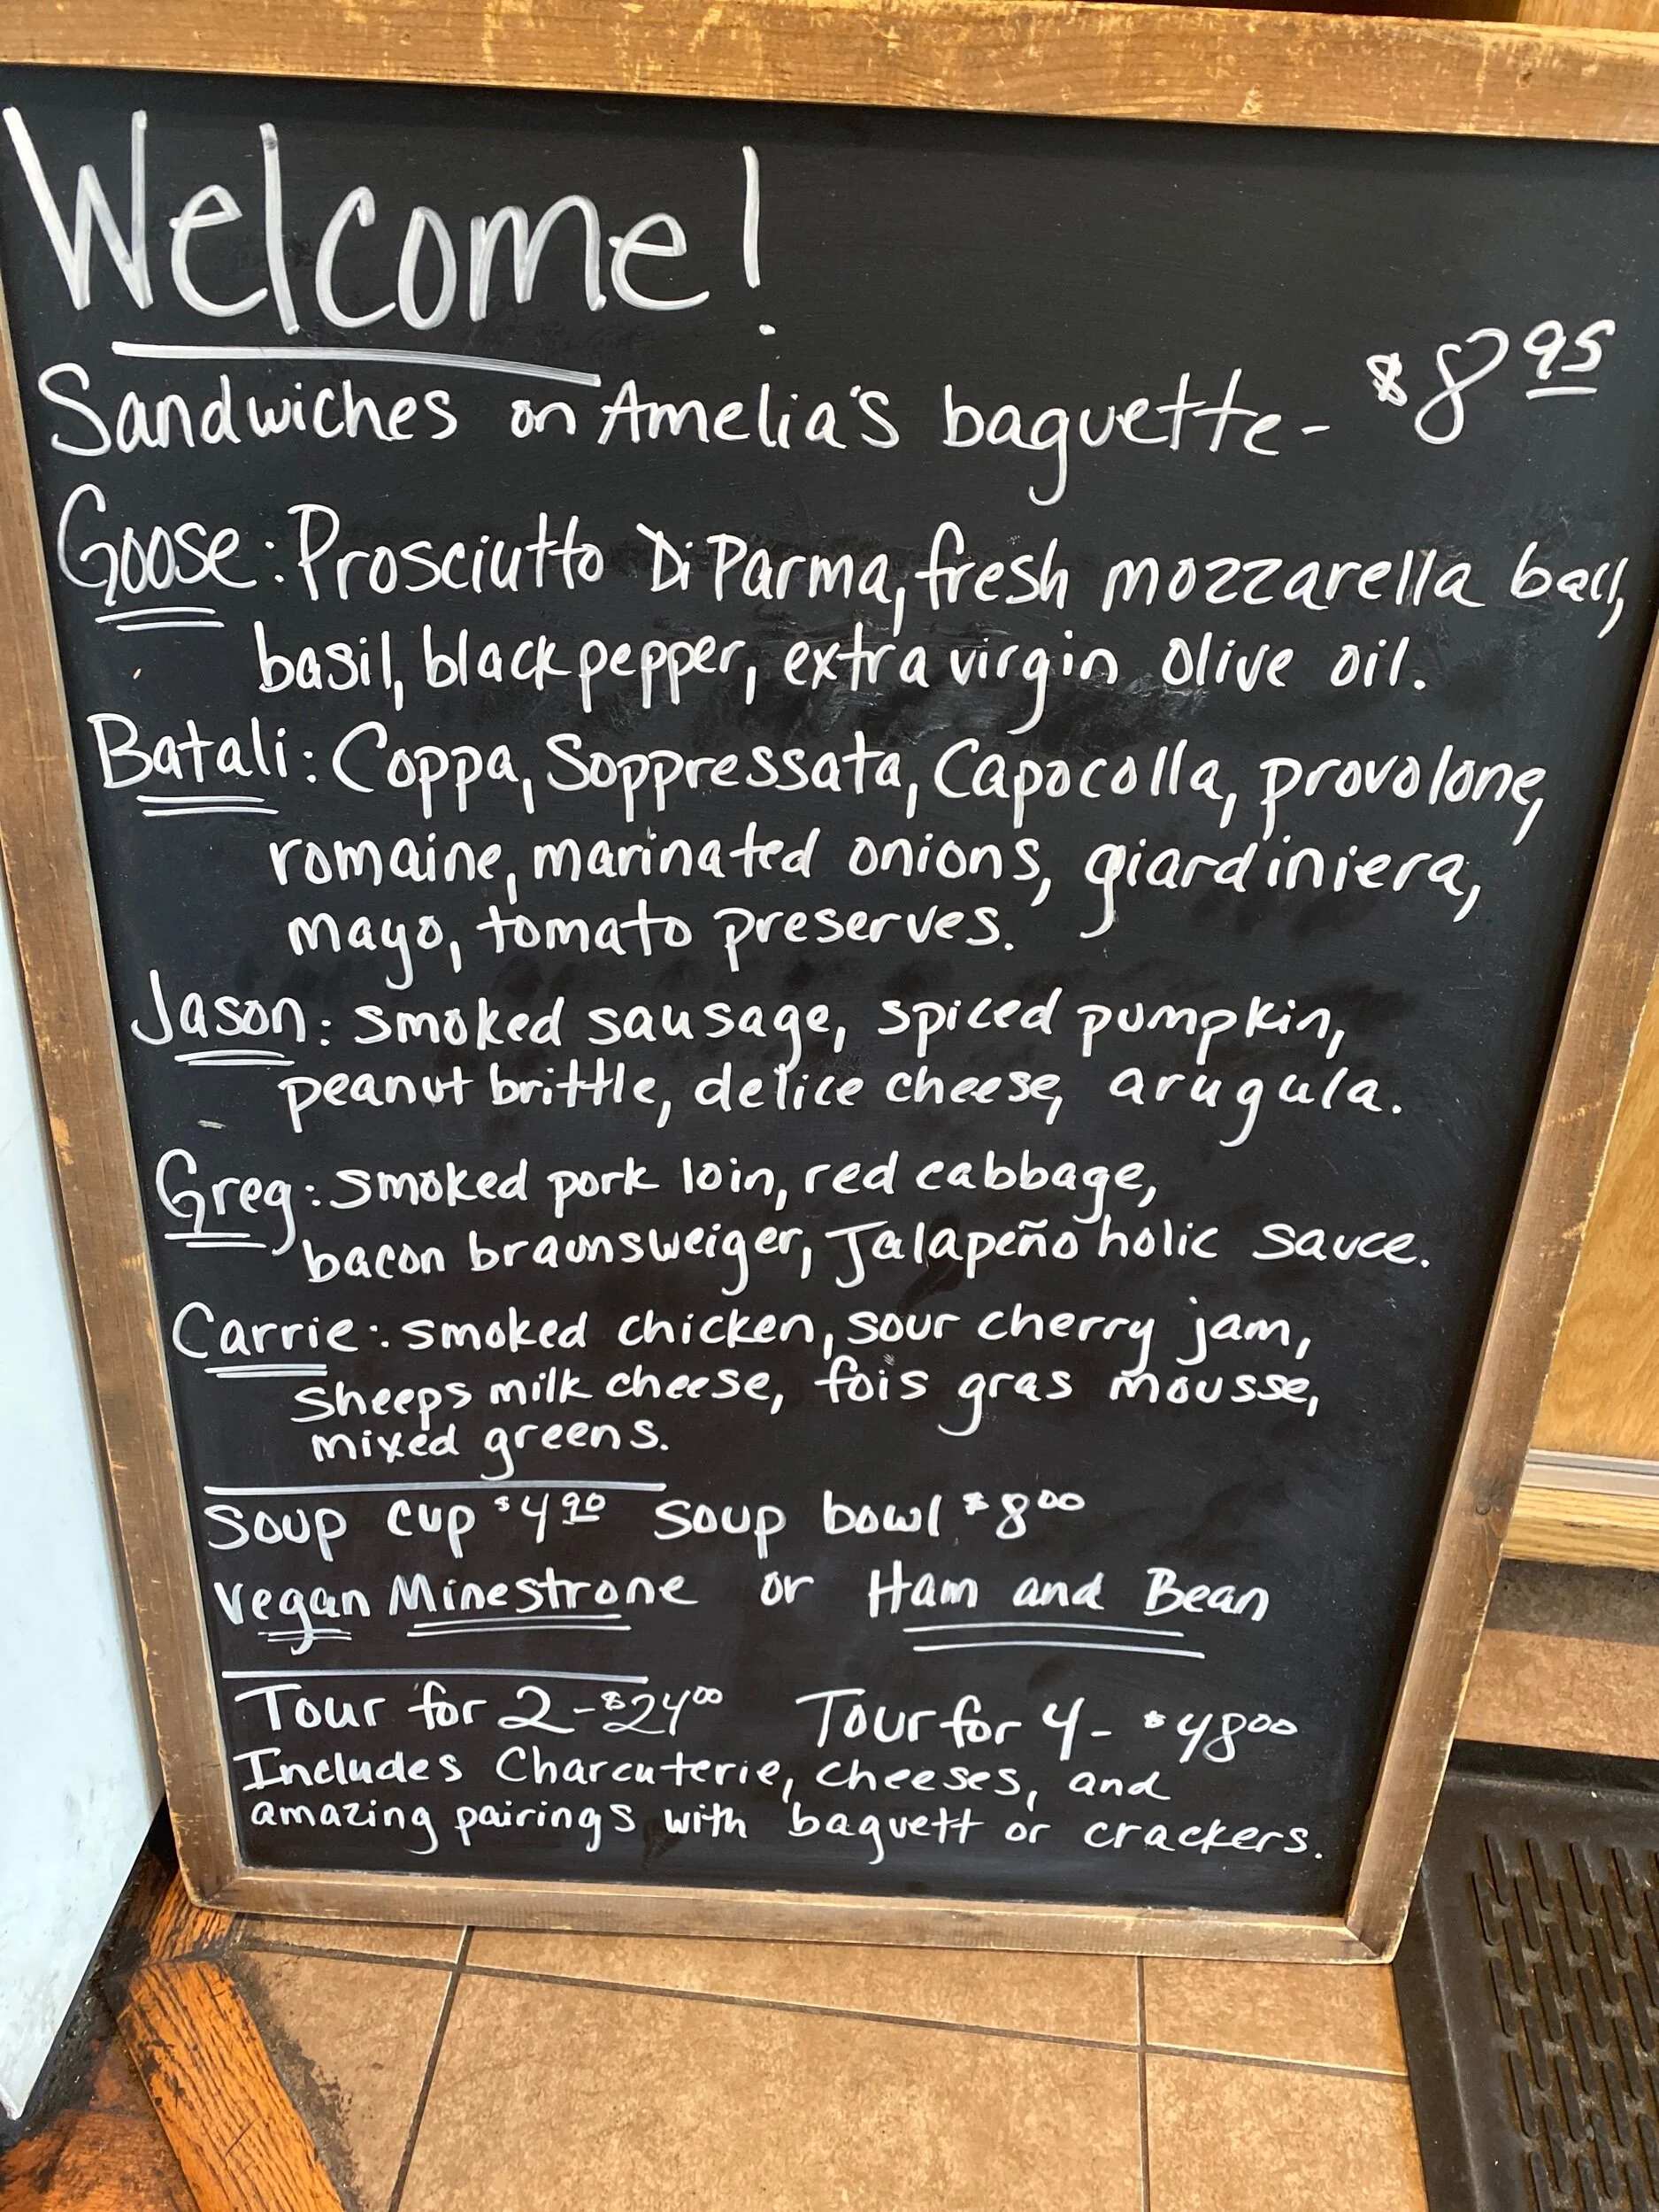 Welcome!
Sandwiches on Amelia's baguette - $8.95
Goose: Prosciutto Di Parma, fresh mozzarella ball,
basil, black pepper, extra virgin olive oil.
Batali: Coppa, Soppressata, Capocolla, provolone,
romaine, marinated onions, giardiniera,
mayo, tomato preserves.
Jason: smoked sausage, spiced pumpkin,
peanut brittle, delice cheese, arugula.
Greg: smoked pork loin, red cabbage,
bacon braunsweiger, Jalapeño holic sauce.
Carrie: smoked chicken, sour cherry jam,
sheeps milk cheese, fois gras mousse,
mixed greens.
Soup cup $4.90 Soup bowl $8.00
vegan Minestrone or Ham and Bean
Tour for 2 - $24.00 Tour for 4 - $48.00
Includes Charcuterie, cheeses, and
amazing pairings with baguett or crackers.